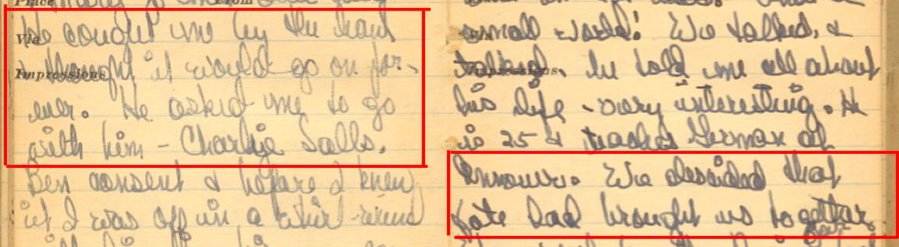 Place
He caught me by the hand
Via
& thought it would go on for-
Impressions
ever. He asked me to go
with him - Charlie Salls.
Ben consent & before I knew
it I was off in a whirl-wind
small world! We talked &
talked. He told me all about
his life - very interesting. He
is 25 & teaches German at
Hanover. We decided that
Fate had brought us together.